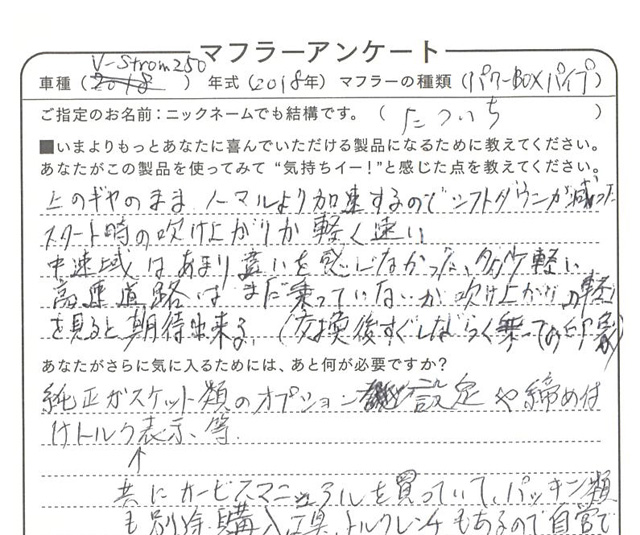 マフラーアンケート
V-Strom250
車種（2018）年式（2018年）マフラーの種類（パワーBOXパイプ）
ご指定のお名前：ニックネームでも結構です。（たついち）
■いまよりもっとあなたに喜んでいただける製品になるために教えてください。
あなたがこの製品を使ってみて“気持ちイー！”と感じた点を教えてください。
上のギヤのまま ノーマルより加速するのでシフトダウンが減った
スタート時の吹け上がりが軽く速い
中速域はあまり違いを感じなかった、多少軽い
高速道路はまだ乗っていないが吹け上がりの軽
を見ると期待出来る。（交換後すぐしばらく乗っての印象）
あなたがさらに気に入るためには、あと何が必要ですか？
純正ガスケット類のオプション設定や締め付
けトルク表示、等
↑
共にサービスマニュアルを買っていて、パッキン類
も別途購入、工具、トルクレンチもあるので自宅で